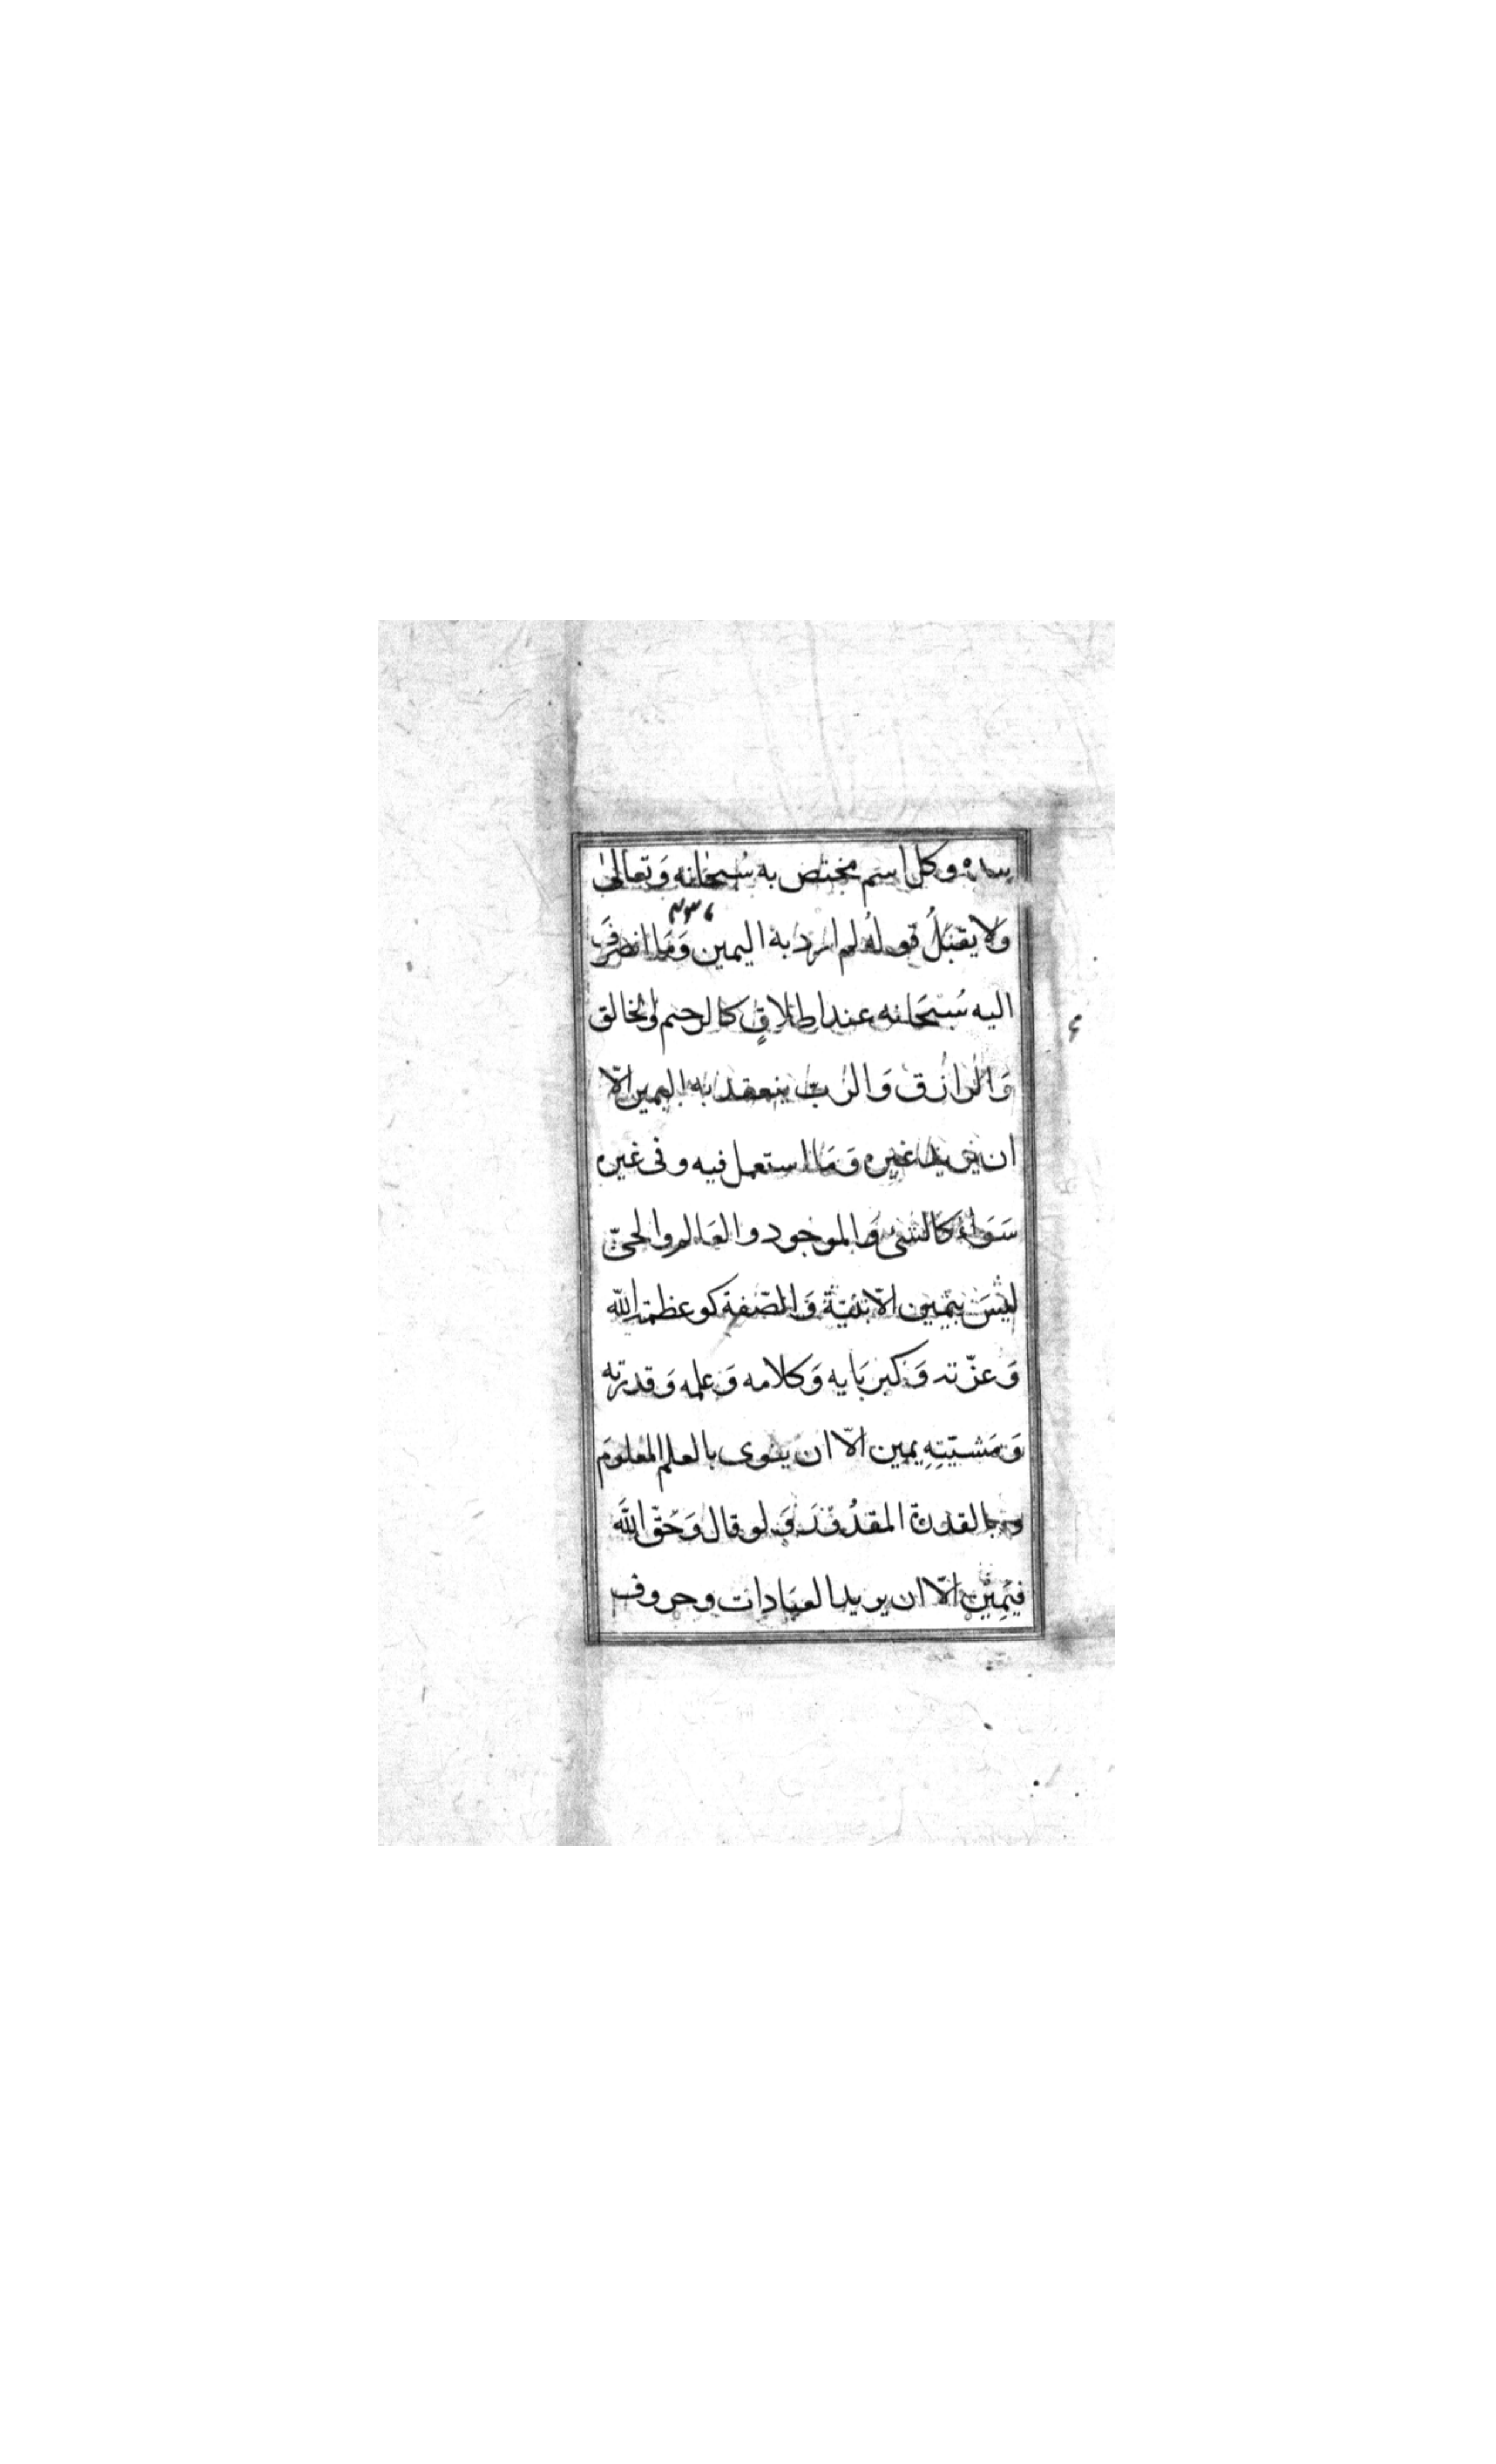 بيده وكل اسم مختص به سُبحانه وَتعالىٰ
ولا يقبَلُ قولهُ لم ارد به اليمين وَمَا انصرفَ
اليه سُبْحَانه عند اطلاقٍ كالرحيم والخالق
وَالرازق وَالربّ ينعقد به اليمين الّا
ان يريد غيره وَمَا استعمل فيه وفى غيره
سَوَاء كالشئ وَالموجود والعَالم والحىّ
ليْسَ بيَمين الّا بنيّة وَالصّفة كوعظمة اللّه
وَعزّته وَكبريَايه وَكلامه وَعلمه وَقدرته
وَمَشيّتِهِ يمين الّا ان ينوى بالعلم المعلومَ
وبالقدرة المقدُورَ وَلو قال وَحَقّ اللّهَ
فيَمِيْن الّا ان يريد العبَادات وحروف